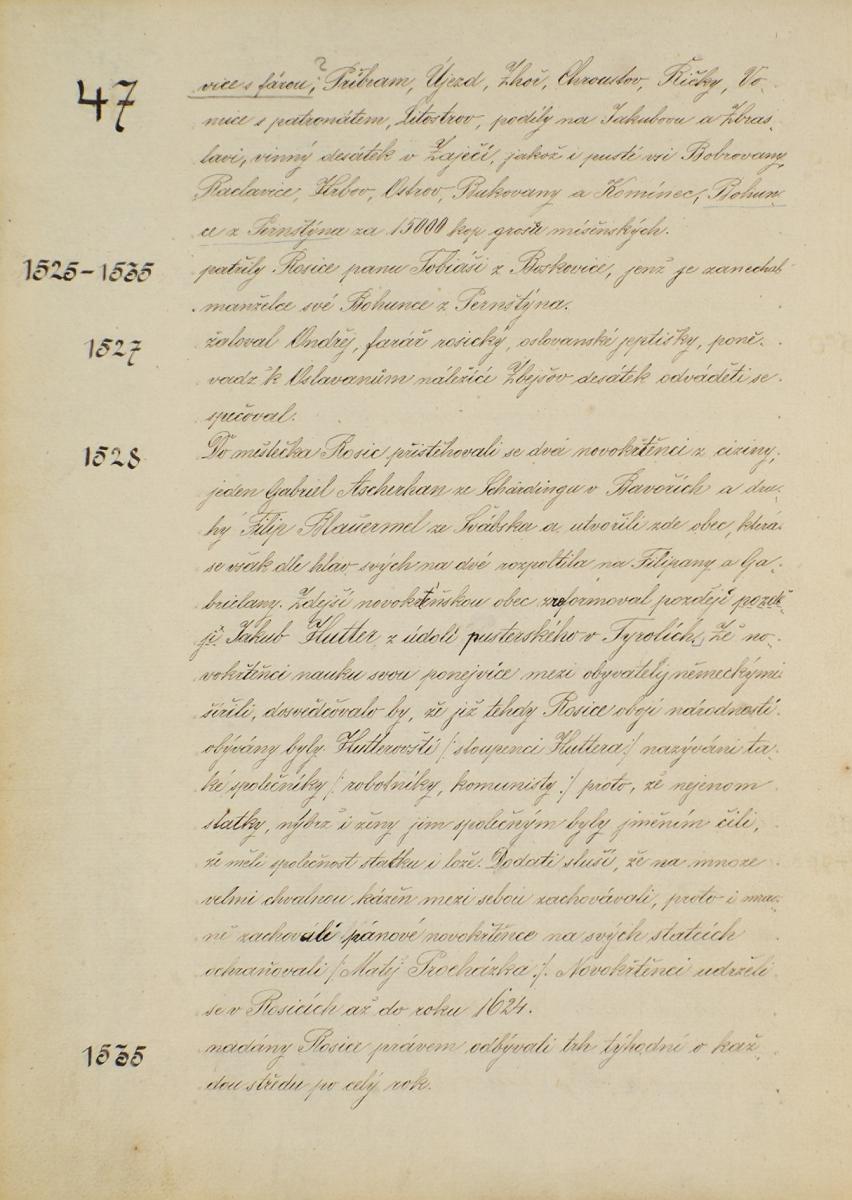 47
?
vice s farou; Příbram, Újezd, Zhoř, Chroustov, Říčky, Vo-
nuce s patronátem, Litostrov, podíly na Jakubovu a Zbras-
lavi, vinný desátek v Zaječí, jakož i pusté vsi Bobrovany,
Raclavice, Hrbov, Ostrov, Bukovany a Komínec, Bohun-
ce z Pernštýna za 15000 kop grošů míšeňských.
1525-1535 patřily Rosice panu Tobiáši z Boskovice, jenž je zanechal
manželce své Bohunce z Pernštýna.
1527 žaloval Ondřej, farář rosický, oslovanské jeptišky, poně-
vadž k Oslavanům náležící Zbejšov desátek odváděti se
spěčoval.
1528 Do městečka Rosic přistěhovali se dvá novokřtěnci z ciziny,
jeden Gabriel Ascherhan ze Schärdingu v Bavořích a dru-
hý Filip Blauermel ze Švábska a utvořili zde obec, která
se však dle hlav svých na dvé rozpoltila na Filipany a Ga-
brielany. Zdejší novokřtěnskou obec zreformoval později pozdě-
ji Jakub Hutter z údolí pusterského v Tyrolích. Že no-
vokřtěnci nauku svou ponejvíce mezi obyvateli německými
šířili, dosvědčovalo by, že již tehdy Rosice obojí národností
obývány byly. Hutterovští /: stoupenci Huttera :/ nazýváni ta-
ké společníky /: robotníky, komunisty :/ proto, že nejenom
statky, nýbrž i ženy jim společným byly jměním čili,
že měli společnost statku i lože. Dodati sluší, že na mnoze
velmi chvalnou kázeň mezi sebou zachovávali, proto i
zachovalí pánové novokřtěnce na svých statcích
ochraňovali /: Matěj Procházka :/. Novokřtěnci udrželi
se v Rosicích až do roku 1624.
1535 nadány Rosice právem odbývati trh týhodní o kaž-
dou středu po celý rok.